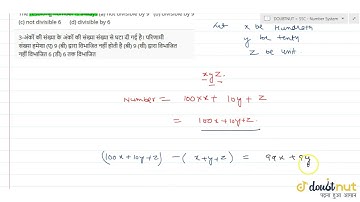 (a) not divisible by 9 (b) divisible by 9
(c) not divisible 6 (d) divisible by 6
3-अंकों की संख्या के अंकों की संख्या संख्या से घटा दी गई है। परिणामी
संख्या हमेशा (ए) 9 (बी) द्वारा विभाजित नहीं होती है (बी) 9 (सी) द्वारा विभाजित
नहीं विभाजित 6 (डी) 6 तक विभाजित
DOUBTNUT > SSC - Number System
Let x be Hundredth
y be tenty
z be unit
xyz.
Number = 100x + 10y + z
= 100x + 10y + z.
(100x + 10y + z) - (x + y + z) = 99x + 9y
doubtnut
पढ़ना हुआ आसान